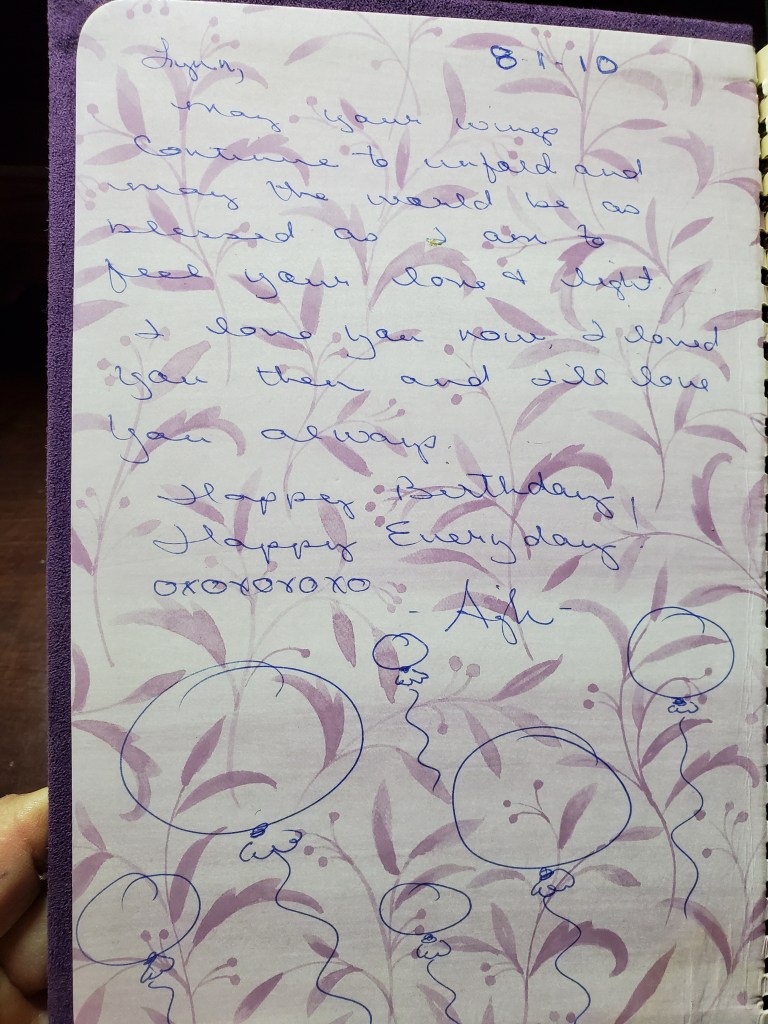 Lynn, 8-1-10
May your wings
Continue to unfold and
may the world be as
blessed as I am to
feel your love & light
I love you now, I loved
you then and still love
you always.
Happy Birthday,
Happy Everyday!
OXOXOXOXO